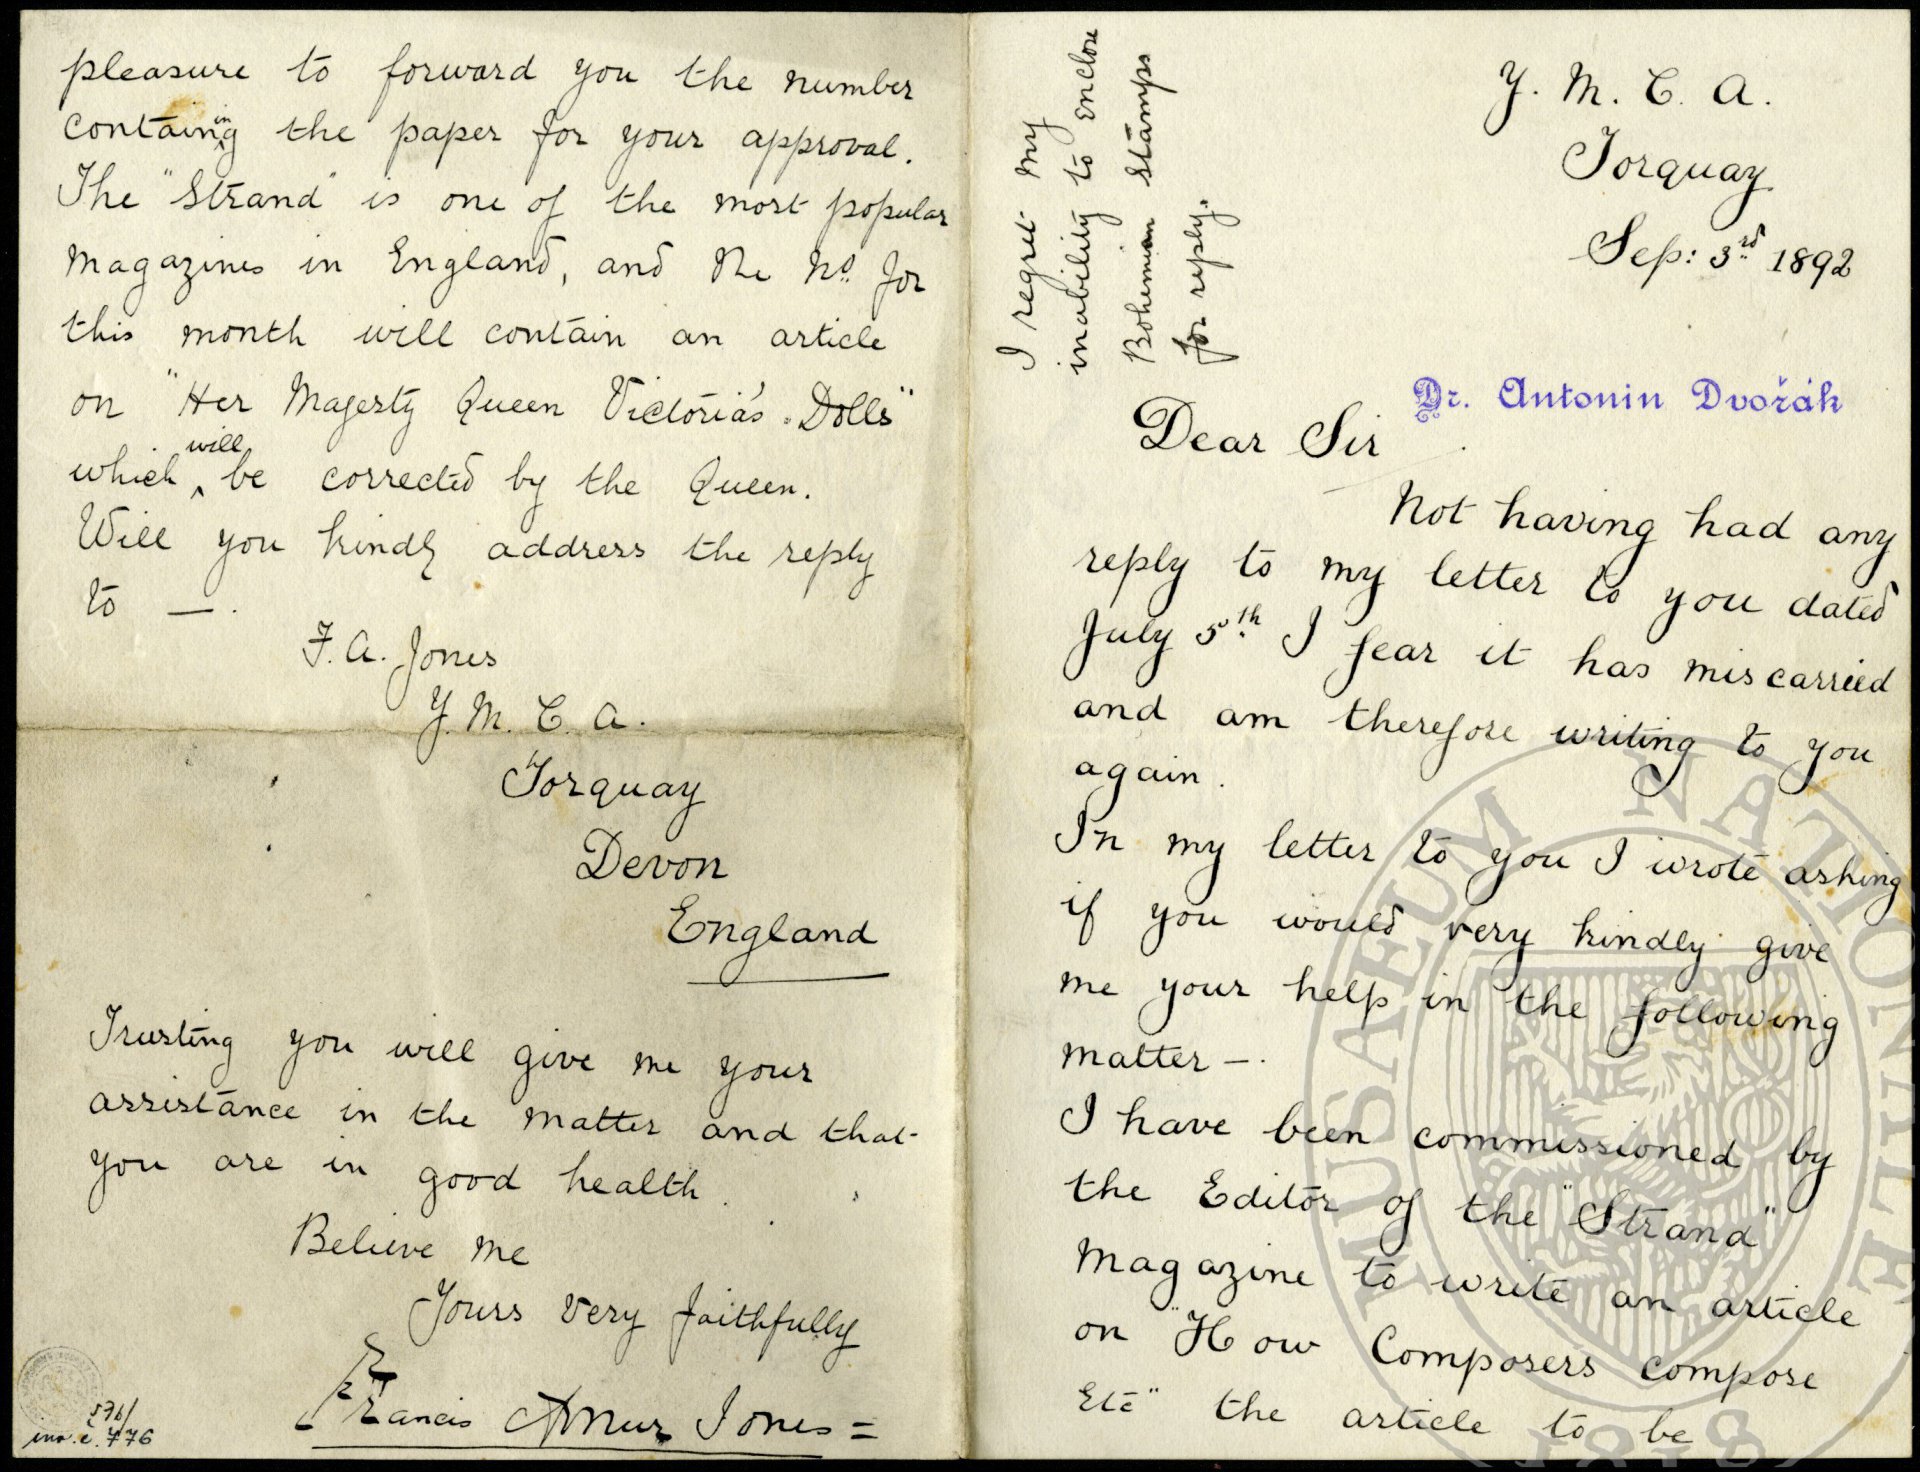 Y. M. C. A.
Torquay
Sep: 3rd 1892
I regret my
inability to enclose
Bohemian stamps
for reply.
Dr. Antonin Dvořák
Dear Sir
Not having had any
reply to my letter to you dated
July 5th I fear it has miscarried
and am therefore writing to you
again.
In my letter to you I wrote asking
if you would very kindly give
me your help in the following
matter —.
I have been commissioned by
the Editor of the "Strand"
Magazine to write an article
on "How Composers compose
Etc" the article to be
MUSAEUM NATIONALE
1818
pleasure to forward you the number
containing the paper for your approval.
The "Strand" is one of the most popular
Magazines in England, and the No. for
this month will contain an article
on "Her Magesty Queen Victoria's Dolls"
which will be corrected by the Queen.
Will you kindly address the reply
to —.
F. A. Jones
Y. M. C. A.
Torquay
Devon
England
Trusting you will give me your
assistance in the matter and that
you are in good health.
Believe me
Yours very faithfully
Francis Arthur Jones =
576/
inv. č. 776